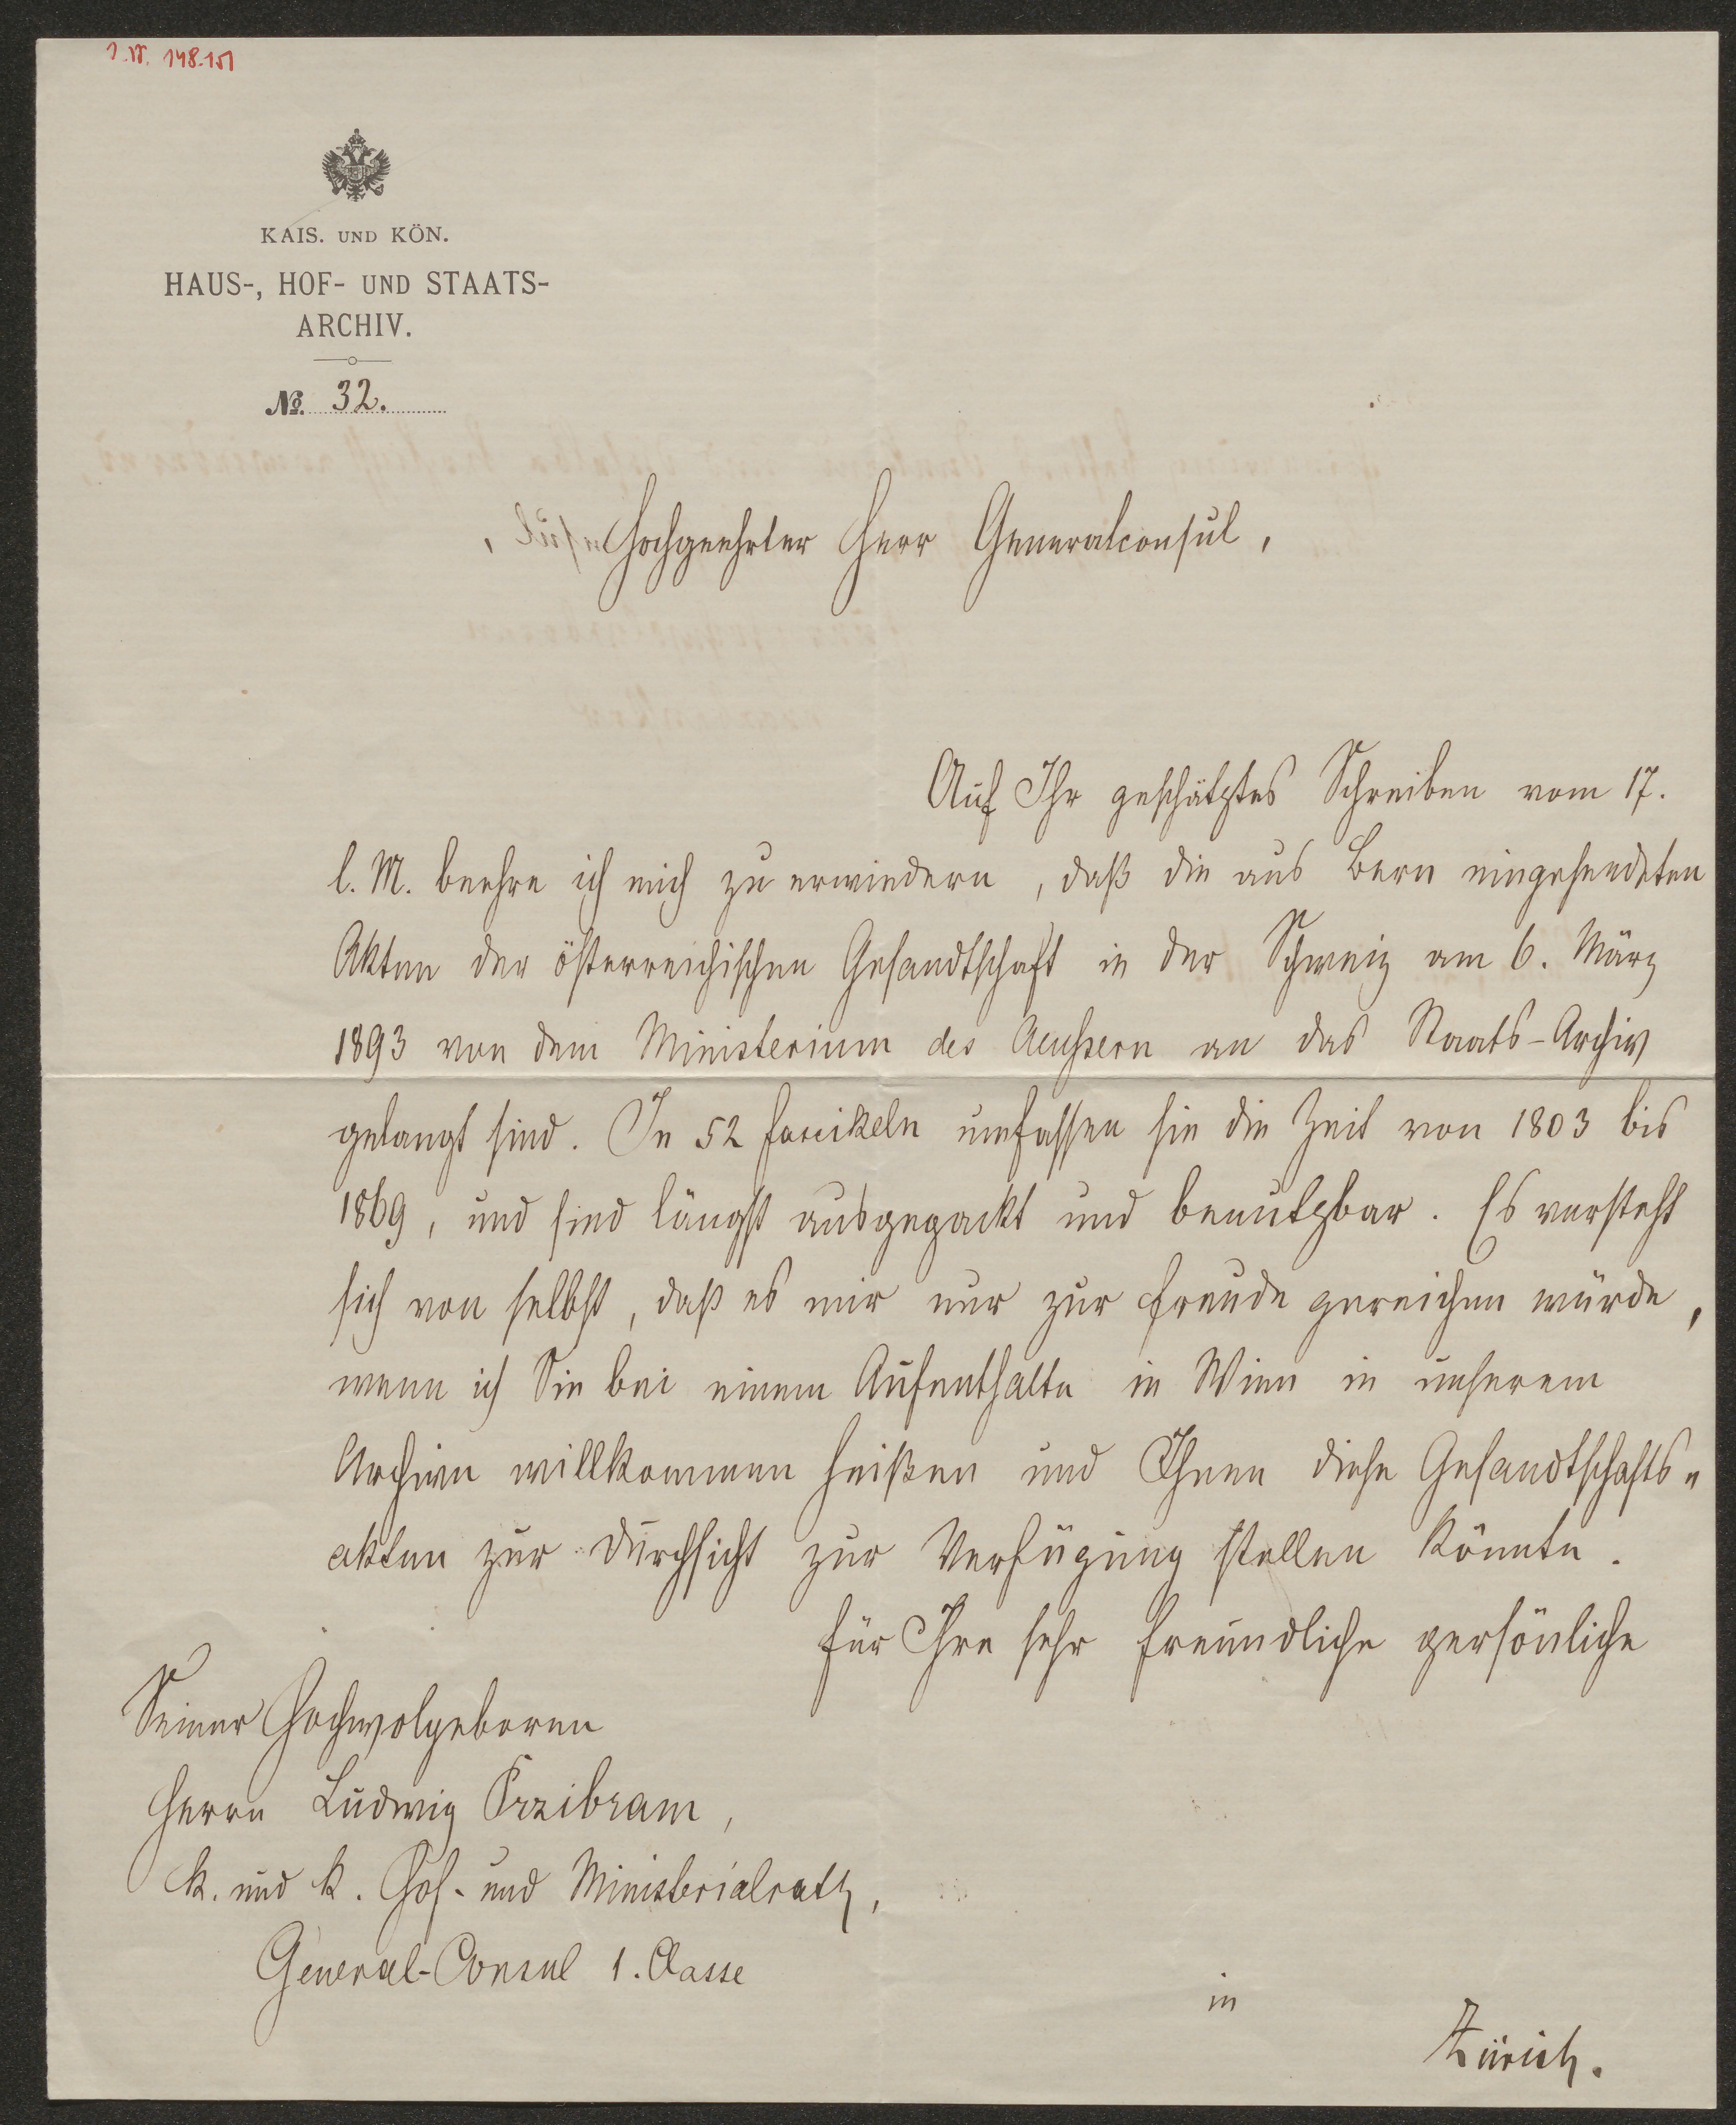 I.N. 148.151
KAIS. UND KÖN.
HAUS-, HOF- UND STAATS-
ARCHIV.
No. 32.
Hochgeehrter Herr Generalconsul,
Auf Ihr geschätztes Schreiben vom 17.
l. M. beehre ich mich zu erwiedern, daß die aus Bern eingesendeten
Akten der österreichischen Gesandtschaft in der Schweiz am 6. März
1893 von dem Ministerium des Aeussern an das Staats-Archiv
gelangt sind. In 52 Fascikeln umfassen sie die Zeit von 1803 bis
1869, und sind längst ausgepackt und benutzbar. Es versteht
sich von selbst, daß es mir nur zur Freude gereichen würde,
wenn ich Sie bei einem Aufenthalte in Wien in unserem
Archive willkommen heißen und Ihnen diese Gesandtschafts-
akten zur Durchsicht zur Verfügung stellen könnte.
Für Ihre sehr freundliche persönliche
Seiner Hochwolgeboren
Herrn Ludwig Przibram,
k. und k. Hof- und Ministerialrath,
General-Consul 1. Classe
in
Zürich.